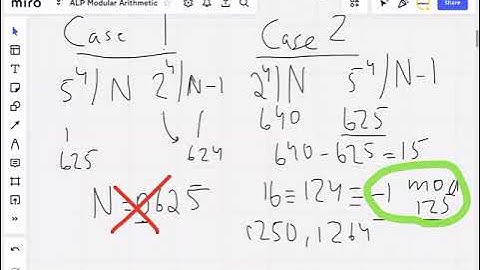 miro
ALP Modular Arithmetic
Case 1
5^4/N 2^4/N-1
625
624
N≡0625
Case 2
2^4/N 5^4/N-1
640 625
640-625=15
16≡124≡-1 mod 125
1250, 1264